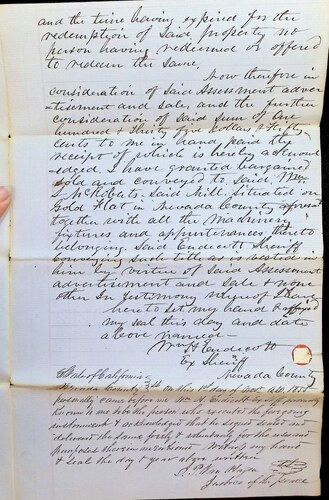 and the time having expired for the
redemption of Said property no
person having redeemed or offered
to redeem the Same.
Now therefore in
consideration of Said Assessment adver
tisement and Sale, and the further
consideration of Said Sum of One
hundred & thirty five Dollars & fifty
cents to me in hand paid the
receipt of which is hereby acknowl
edged, I have granted bargained
Sold and conveyed to Said Wm
Said Mill, Situated on
Gold Flat in Nevada County
together with all the Machinery
fixtures and appurtenances thereto
belonging. Said Endicott Sheriff
Conveying such title as is vested in
him by virtue of Said Assessment
advertisement and Sale & none
other In Testimony whereof I have
hereto Set my hand & affixed
my seal this day and date
above named
Wm H Endicott
Ex Sheriff
Nevada County
State of California
Nevada County On this day of
personally came before me Wm H. Endicott Ex Sheriff personally
Known to me to be the person who executed the foregoing
instrument & acknowledged that he signed sealed and
delivered the same freely & voluntarily for the uses and
purposes therein mentioned. Witness my hand
& Seal the day & year above written
Justice of the peace